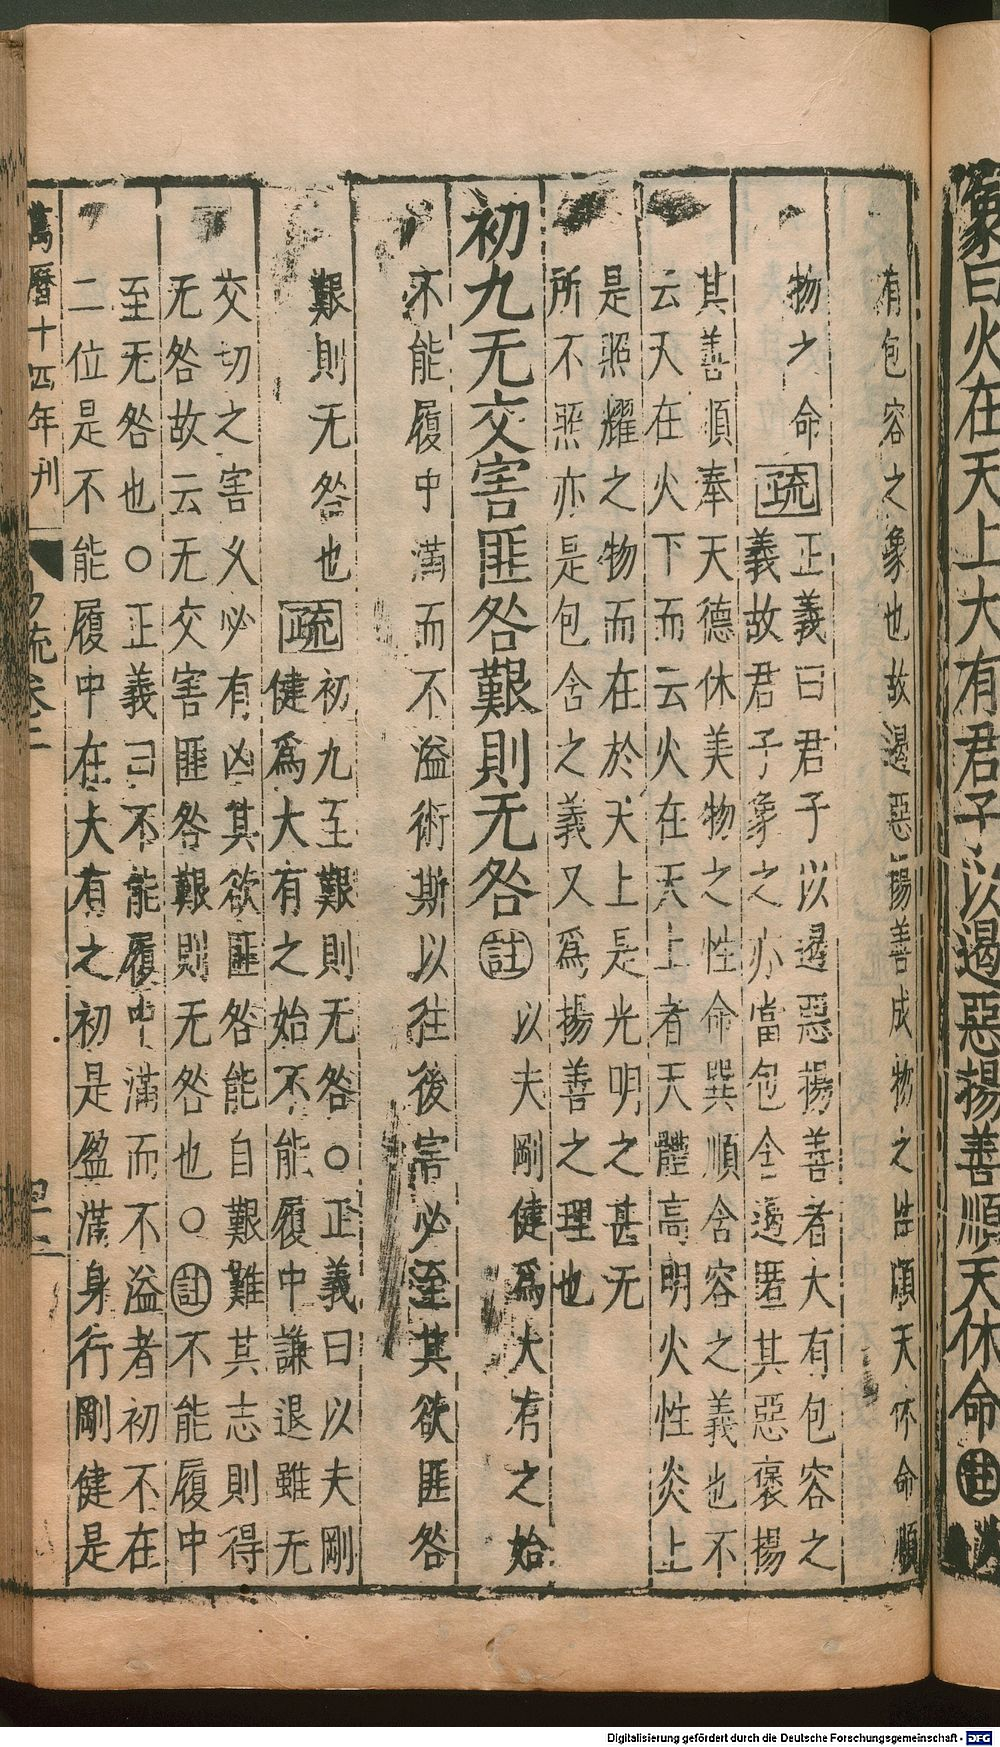 象曰火在天上大有君子以遏惡揚善順天休命註
有包容之象也故遏惡揚善成物之性順天休命順
物之命疏正義曰君子以遏惡揚善者大有包容之
義故君子象之亦當包含遏匿其惡褒揚
其善順奉天德休美物之性命巽順含容之義也不
云天在火下而云火在天上者天體高明火性炎上
是照耀之物而在於天上是光明之甚无
所不照亦是包含之義又為揚善之理也
初九无交害匪咎艱則无咎註以夫剛健為大有之始
不能履中滿而不溢術斯以往後害必至其欲匪咎
艱則无咎也疏初九至艱則无咎○正義曰以夫剛
健為大有之始不能履中謙退雖无
交切之害乂必有凶其欲匪咎能自艱難其志則得
无咎故云无交害匪咎艱則无咎也○註不能履中
至无咎也○正義曰不能履中滿而不溢者初不在
二位是不能履中在大有之初是盈滿身行剛健是
萬曆十四年刊
易疏卷二
Digitalisierung gefördert durch die Deutsche Forschungsgemeinschaft - DFG